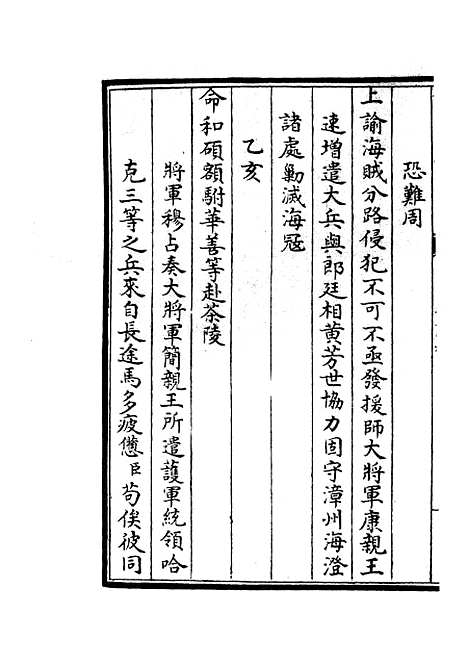 恐難周
上諭海賊分路侵犯不可不亟發援師大將軍康親王
速增遣大兵與郎廷相黄芳世協力固守漳州海澄
諸處勦滅海冦
乙亥
命和碩額駙華善等赴茶陵
將軍穆占奏大將軍簡親王所遣護軍統領哈
克三等之兵來自長途馬多疲憊臣苟俟彼同